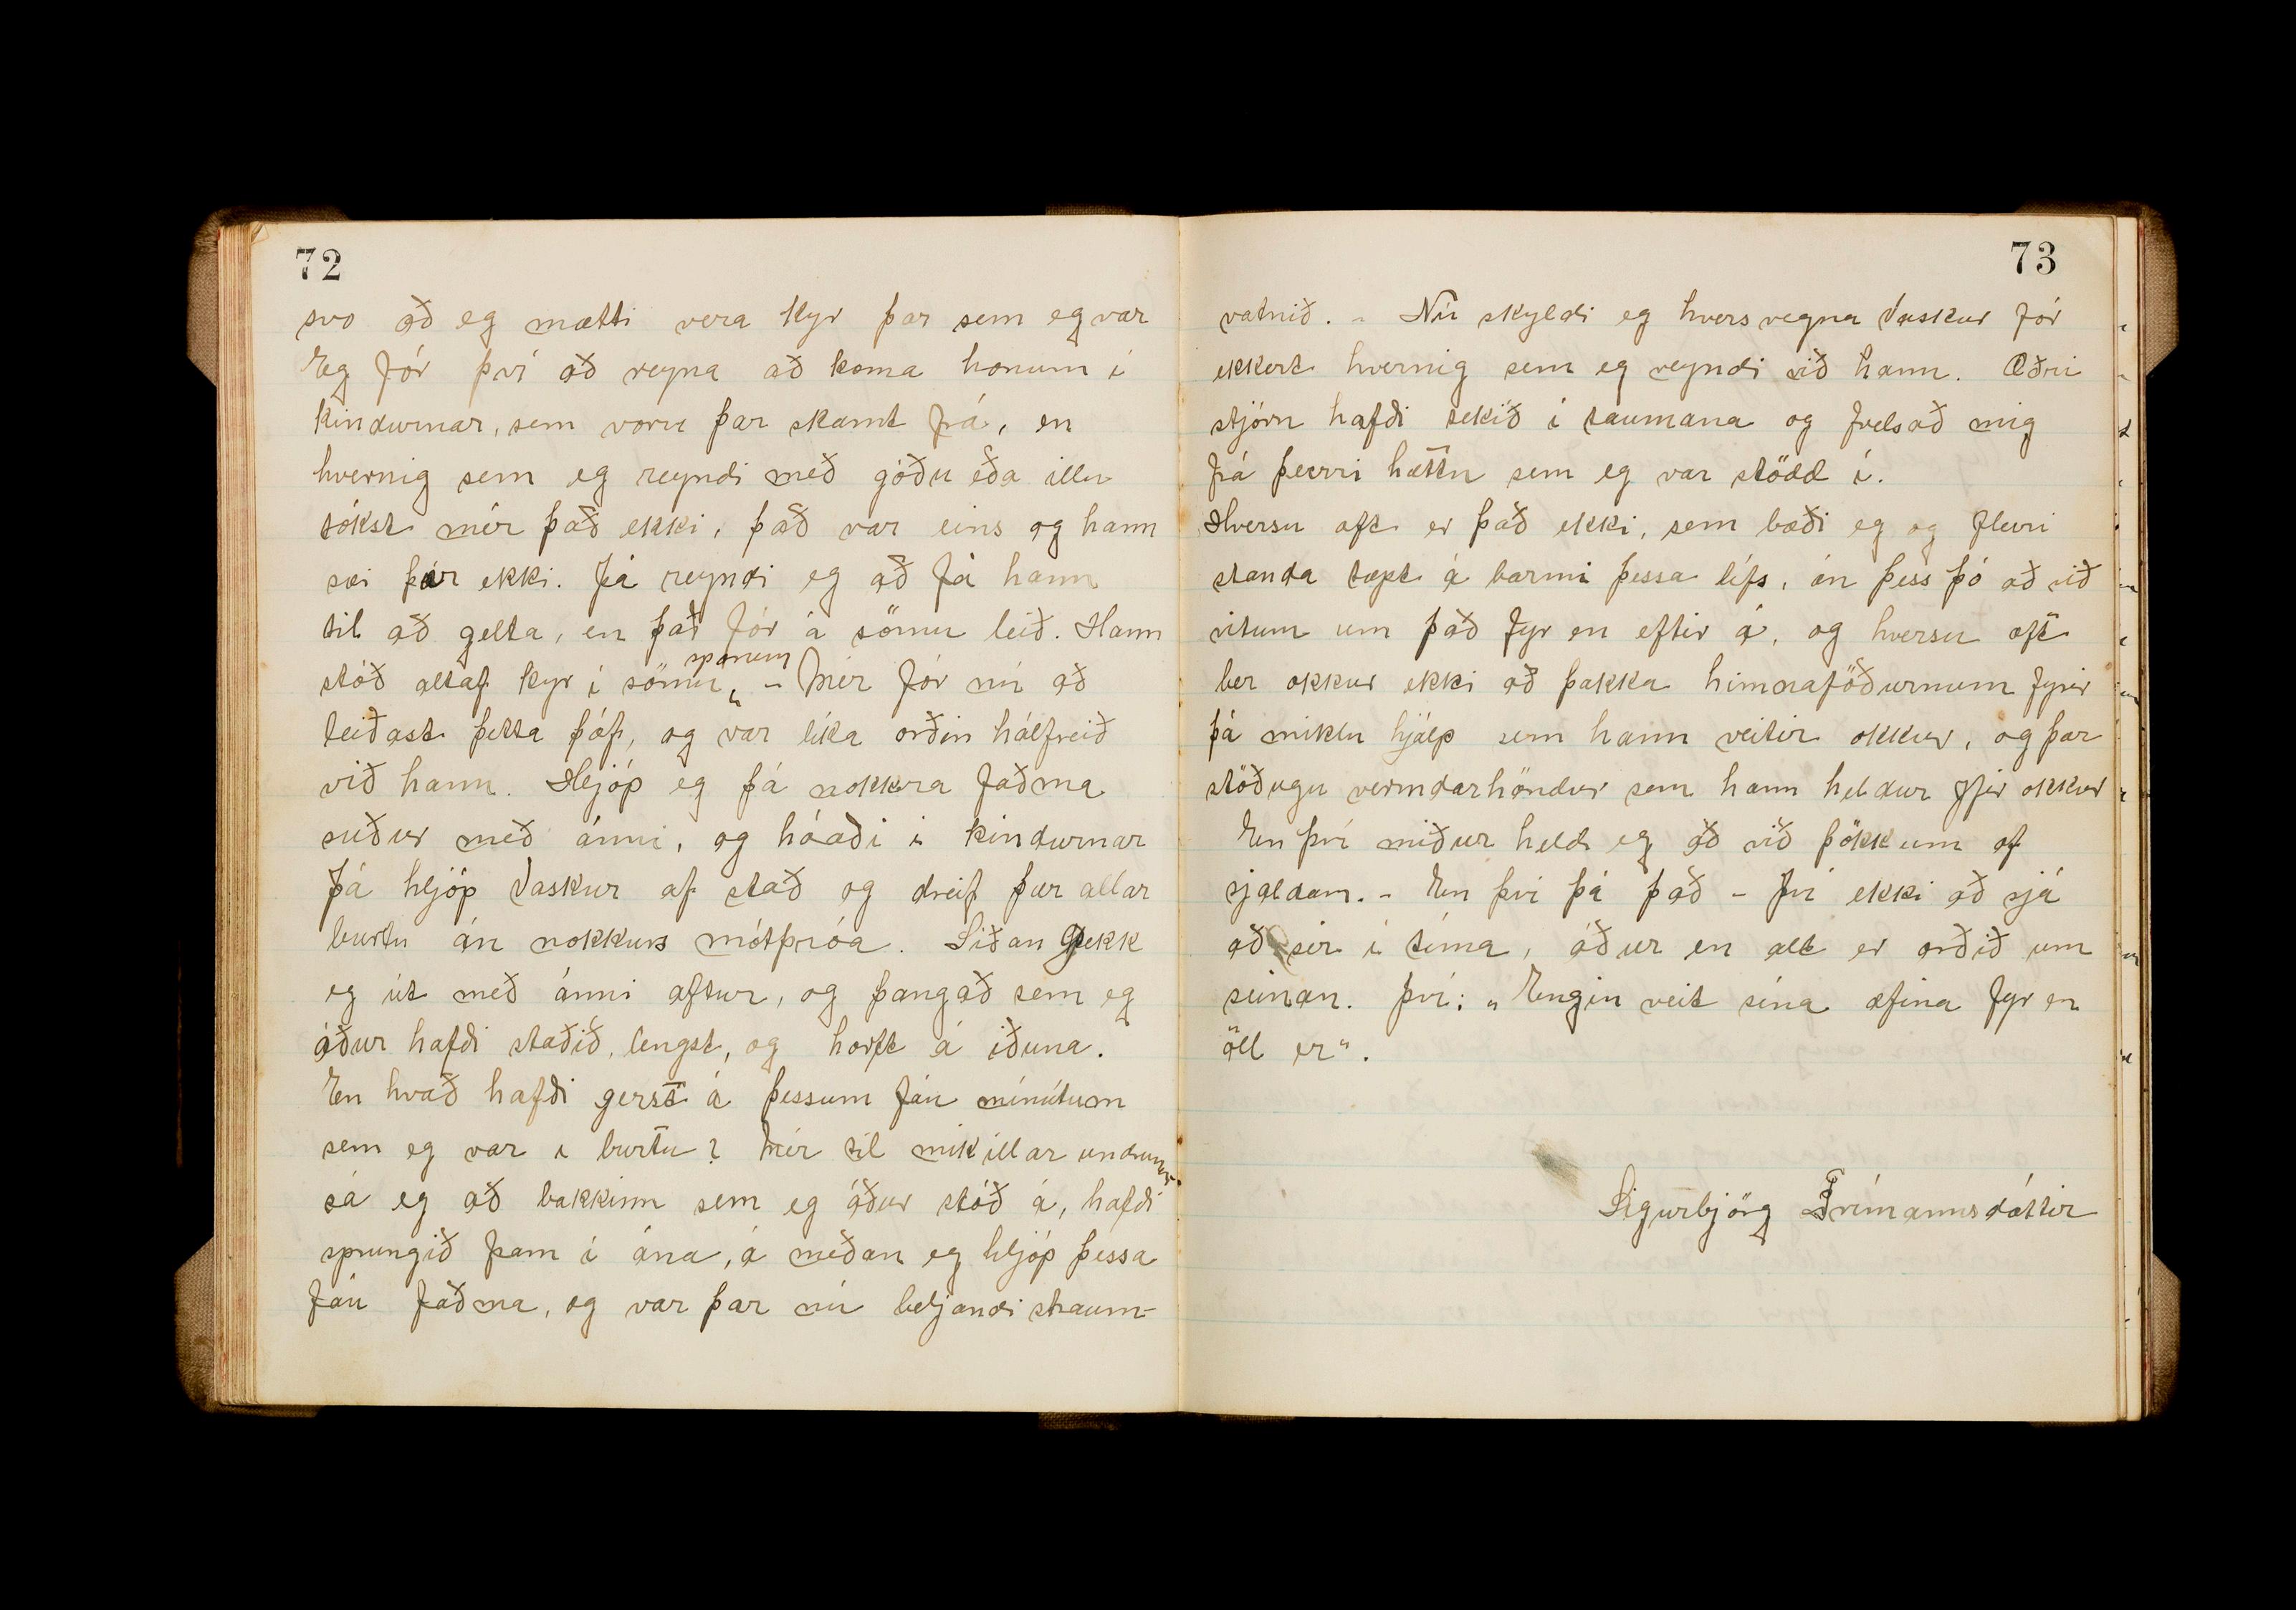 72
svo að eg mætti vera kyr þar sem eg var
Eg fór því að reyna að koma honum í
kindurnar, sem voru þar skamt frá, en
hvernig sem eg reyndi með góðu eða illu
tókst mér það ekki, það var eins og hann
sæi þær ekki. Þá reyndi eg að fá hann
til að gelta, en það fór á sömu leið. Hann
stóð altaf kyr í sömu sporum. - Mér fór nú að
leiðast þetta þóf, og var líka orðin hálfreið
við hann. Hljóp eg þá nokkra faðma
suður með ánni, og hóaði í kindurnar
Þá hljóp Vaskur af stað og dreif þær allar
burtu án nokkurs mótþróa. Síðan gekk
eg út með ánni aftur, og þangað sem eg
áður hafði staðið, lengst, og horft á iðuna.
En hvað hafði gerst á þessum fáu mínútum
sem eg var í burtu? Mér til mikillar undrunar
sá eg að bakkinn sem eg áður stóð á, hafði
sprungið fram í ána, á meðan eg hljóp þessa
fáu faðma, og var þar nú beljandi straum-
73
vatnið. - Nú skyldi eg hversvegna Vaskur fór
ekkert hvernig sem eg reyndi við hann. Æðri
stjórn hafði tekið í taumana og frelsað mig
frá þeirri hættu sem eg var stödd í.
Hversu oft er það ekki, sem bæði eg og fleiri
standa tæpt á barmi þessa lífs, án þess þó að við
vitum um það fyr en eftir á, og hversu oft
ber okkur ekki að þakka himnaföðurnum fyrir
þá miklu hjálp sem hann veitir okkur, og þær
stöðugu verndarhöndur sem hann heldur yfir okkur
En því miður held eg að við þökkum of
sjaldan. - En því þá það - Því ekki að sjá
að sér í tíma, áður en alt er orðið um
seinan. Því: „Engin veit sína æfina fyr en
öll er“.
Sigurbjörg Frímannsdóttir